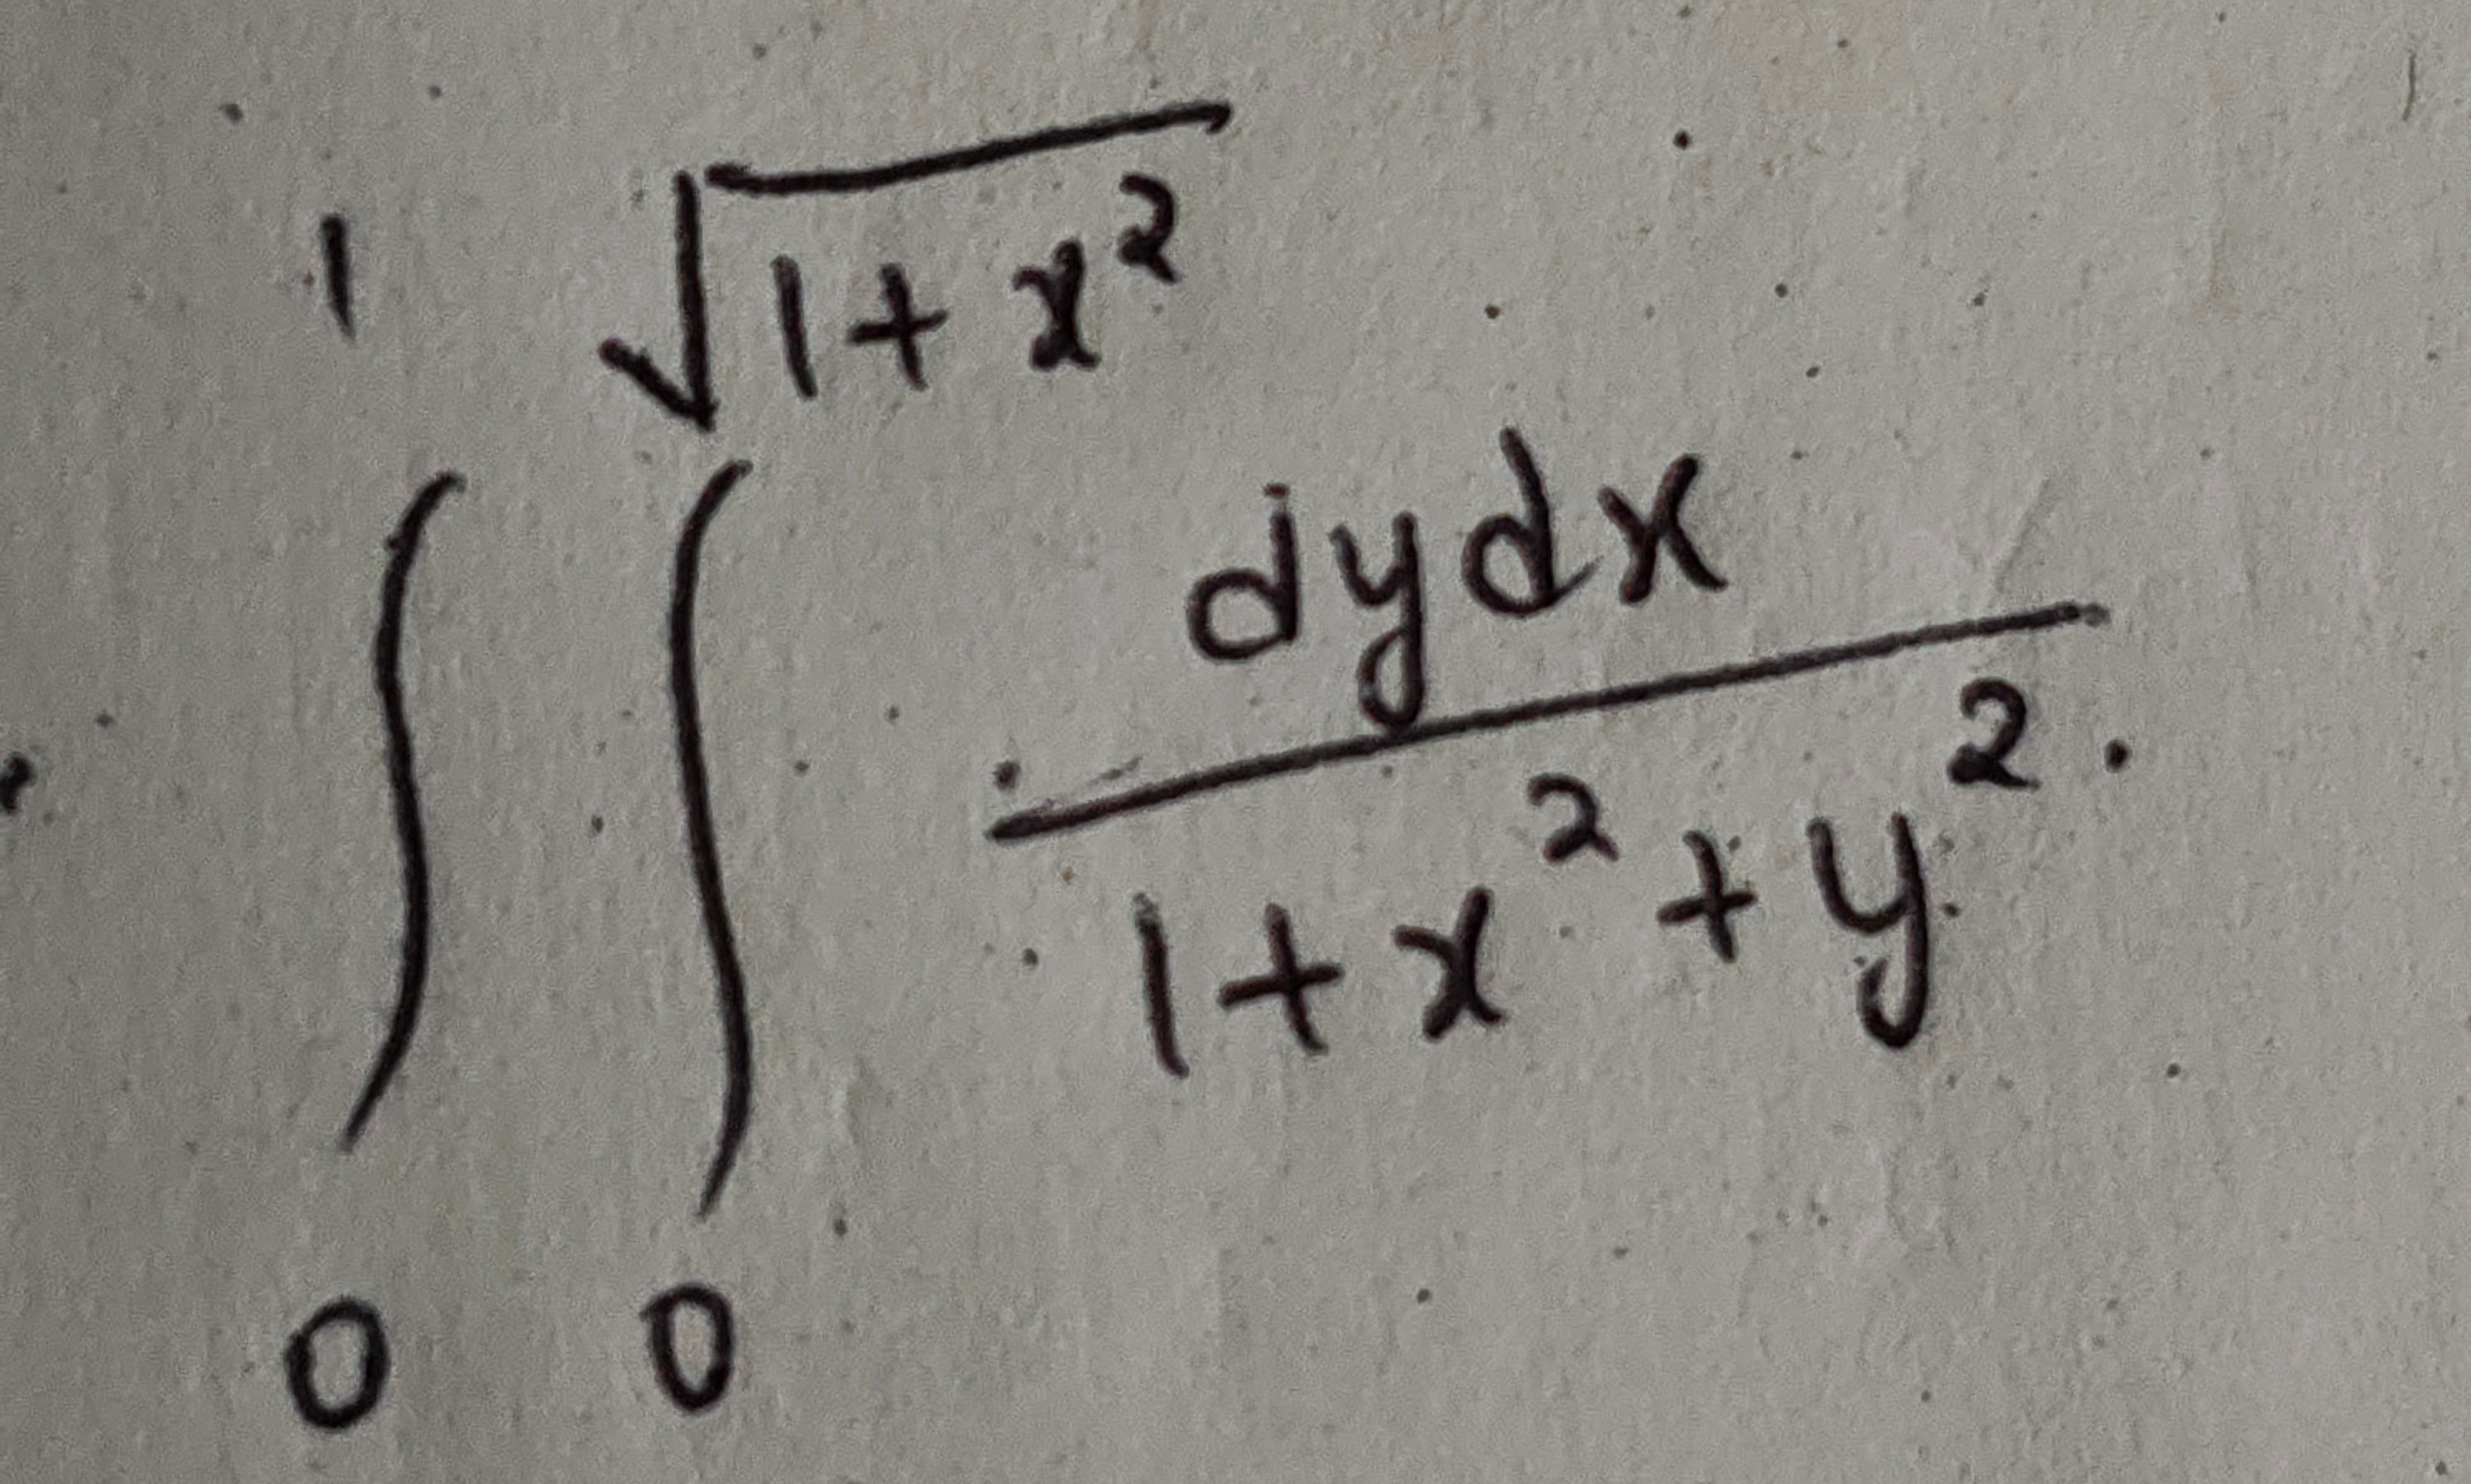 ∫₀¹ ∫₀^√(1+x²) dydx / (1+x²+y²).